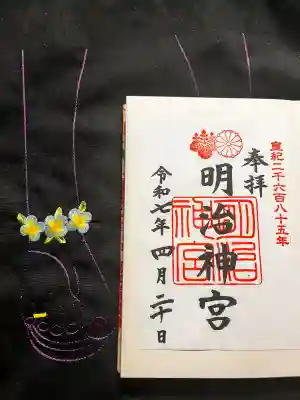 皇紀二千六百八十五年
奉拝
明治神宮
明治神宮
令和七年 四月二十日